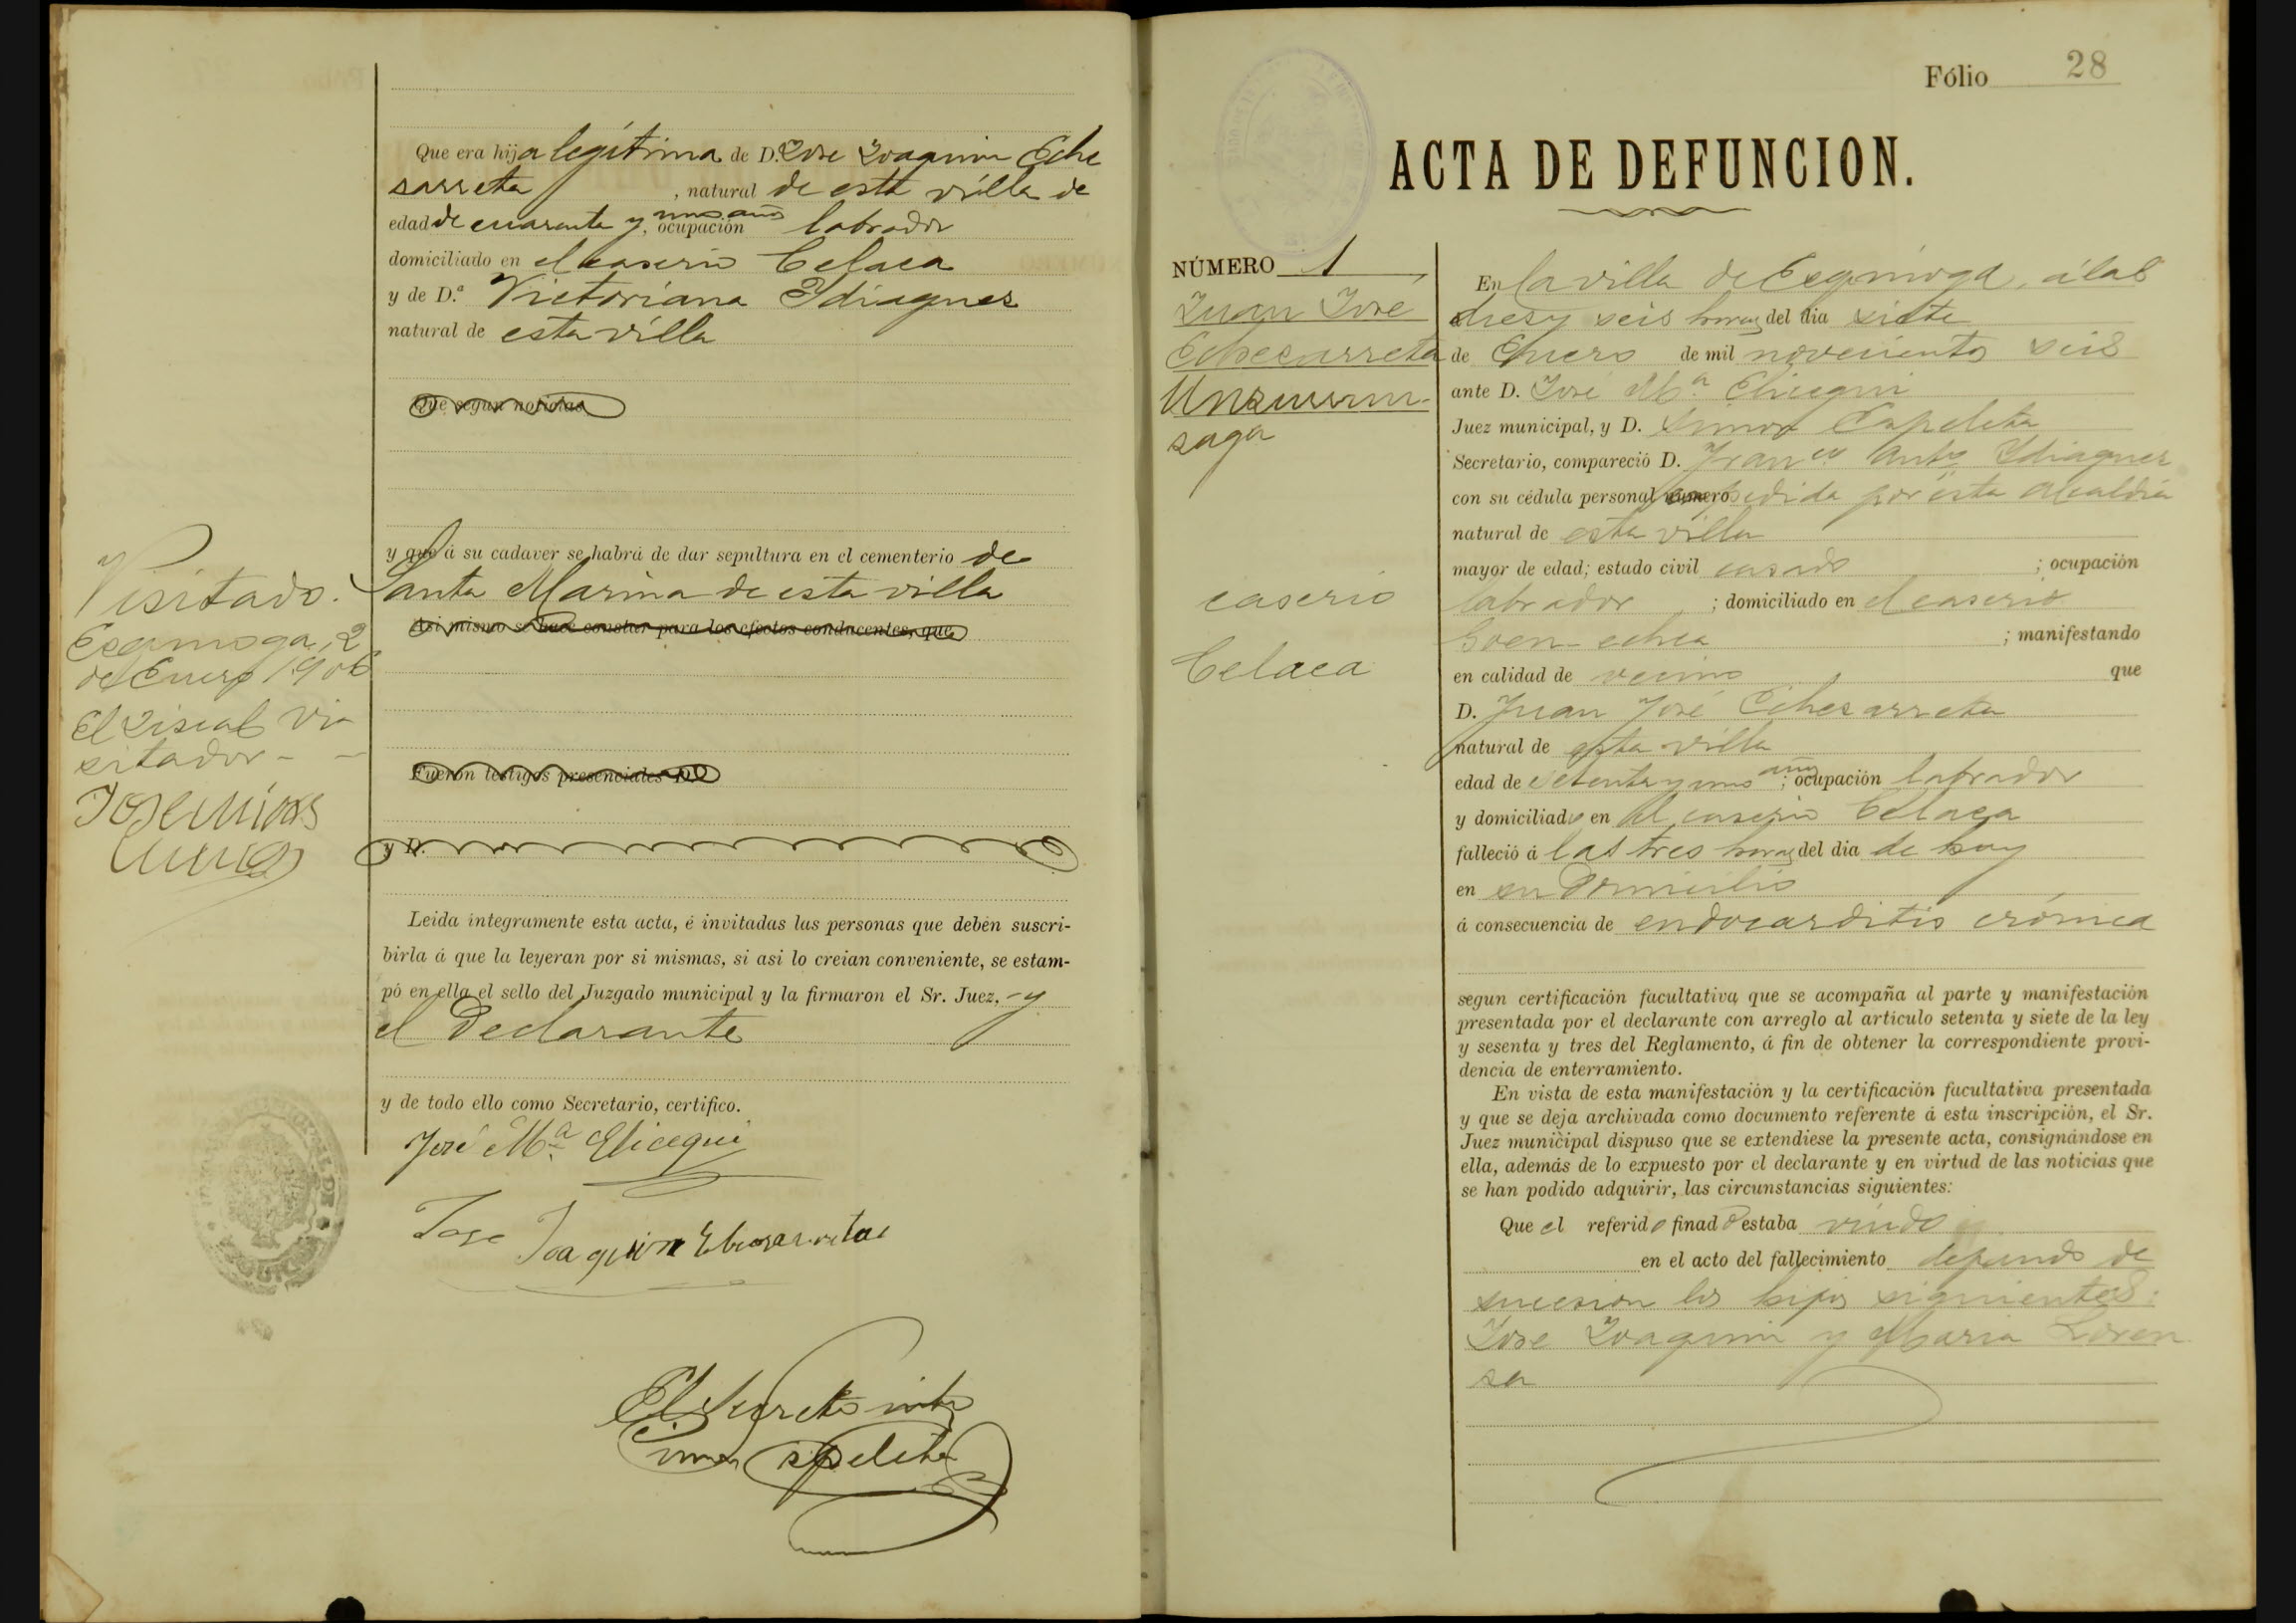 Que era hija legítima de D. Jose Joaquin Eche
sarreta, natural de esta villa de
edad de cuarenta y unos años, ocupación labrador
domiciliado en el caserio Celaea
y de D.ª Victoriana Ydiaquez
natural de esta villa
Que segun noticias
y que á su cadaver se habrá de dar sepultura en el cementerio de
Santa Marina de esta villa
Asi mismo se hace constar para los efectos conducentes, que
Fueron testigos presenciales D.
y D.
Leida íntegramente esta acta, é invitadas las personas que deben suscri-
birla á que la leyeran por si mismas, si asi lo creian conveniente, se estam-
pó en ella el sello del Juzgado municipal y la firmaron el Sr. Juez, - y
el Declarante
y de todo ello como Secretario, certifico.
José Mª Elicegui
Jose Joaquin Echesarreta
El Secretº intº
Simon Espeleta
Visitado.
Ezquioga, 2
de Enero 1906
El Fiscal Vi
sitador - -
Fólio 28
ACTA DE DEFUNCION.
NÚMERO 1
Juan José
Echesarreta
Unzurrun-
saga
caserio
Celaea
En la villa de Ezquioga, á las
dies y seis horas del dia siete
de Enero de mil novecientos seis
ante D. José Mª Elicegui
Juez municipal, y D. Simon Espeleta
Secretario, compareció D. Franco Anto Ydiaquez
con su cédula personal número espedida por esta Alcaldia
natural de esta villa
mayor de edad; estado civil casado ; ocupación
labrador ; domiciliado en el caserio
Goen-echea ; manifestando
en calidad de vecino que
D. Juan José Echesarreta
natural de esta villa
edad de setenta y uno años; ocupación labrador
y domiciliado en el caserio Celaea
falleció á las tres horas del dia de hoy
en su Domicilio
á consecuencia de endocarditis crónica
segun certificación facultativa que se acompaña al parte y manifestación
presentada por el declarante con arreglo al artículo setenta y siete de la ley
y sesenta y tres del Reglamento, á fin de obtener la correspondiente provi-
dencia de enterramiento.
En vista de esta manifestación y la certificación facultativa presentada
y que se deja archivada como documento referente á esta inscripción, el Sr.
Juez municipal dispuso que se extendiese la presente acta, consignándose en
ella, además de lo expuesto por el declarante y en virtud de las noticias que
se han podido adquirir, las circunstancias siguientes:
Que el referido finado estaba viudo
en el acto del fallecimiento dejando de
sucesion los hijos siguientes:
Jose Joaquin y Maria Loren
sa